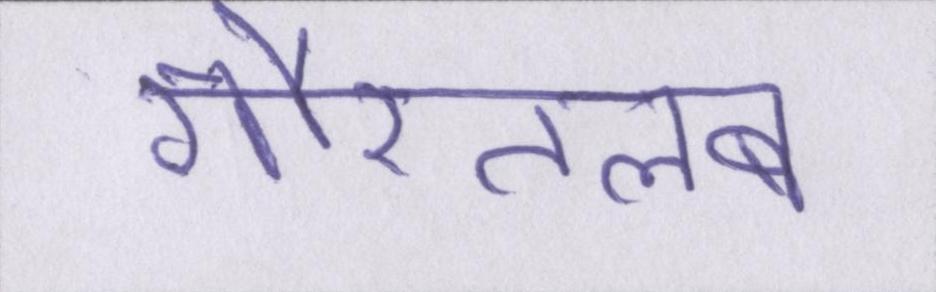 गौरतलब